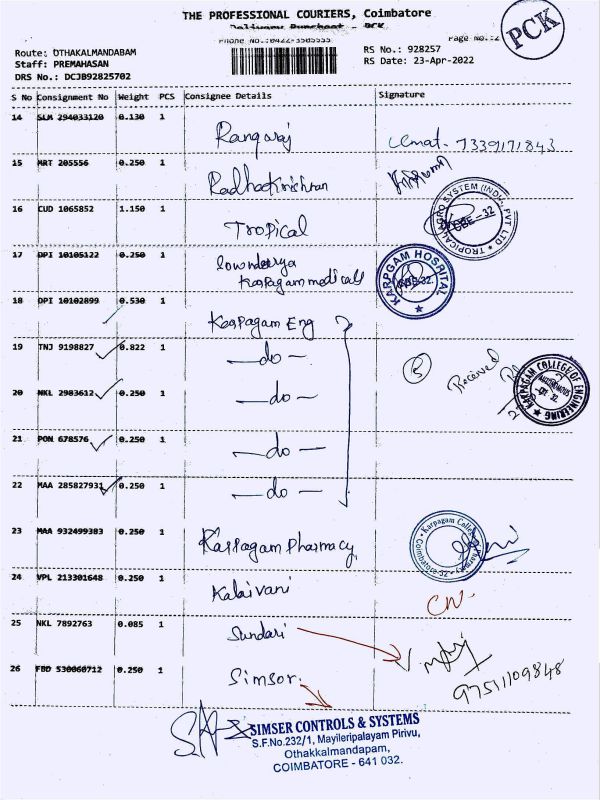 THE PROFESSIONAL COURIERS, Coimbatore
Delivery Runsheet - PCK
PCK
Phone No.:0422-3505555
Page No.:2
Route: OTHAKALMANDABAM
Staff: PREMAHASAN
DRS No.: DCJB92825702
RS No.: 928257
RS Date: 23-Apr-2022
S No Consignment No Weight PCS Consignee Details Signature
14 SLM 294033120 0.130 1 Rangaraj 7339171843
15 MRT 205556 0.250 1 Radhakrishnan
16 CUD 1065852 1.150 1 Tropical
TROPICAL AGRO SYSTEM (INDIA) PVT LTD CBE-32
17 DPI 10105122 0.250 1 Sowndarya
Karpagam medicals
KARPGAM HOSPITAL CBE-32.
18 DPI 10102899 0.530 1 Karpagam Eng
19 TNJ 9198827 0.822 1 —do—
5 Received
KARPAGAM COLLEGE OF ENGINEERING
20 NKL 2983612 0.250 1 —do—
21 PON 678576 0.250 1 —do—
22 MAA 285827931 0.250 1 —do—
23 MAA 932499383 0.250 1 Karpagam Pharmacy
Karpagam College of Pharmacy Coimbatore-32
24 VPL 213301648 0.250 1 Kalaivani
25 NKL 7892763 0.085 1 Sundari
26 FBD 530060712 0.250 1 Simsor.
9751109848
SIMSER CONTROLS & SYSTEMS
S.F.No.232/1, Mayileripalayam Pirivu,
Othakkalmandapam,
COIMBATORE - 641 032.